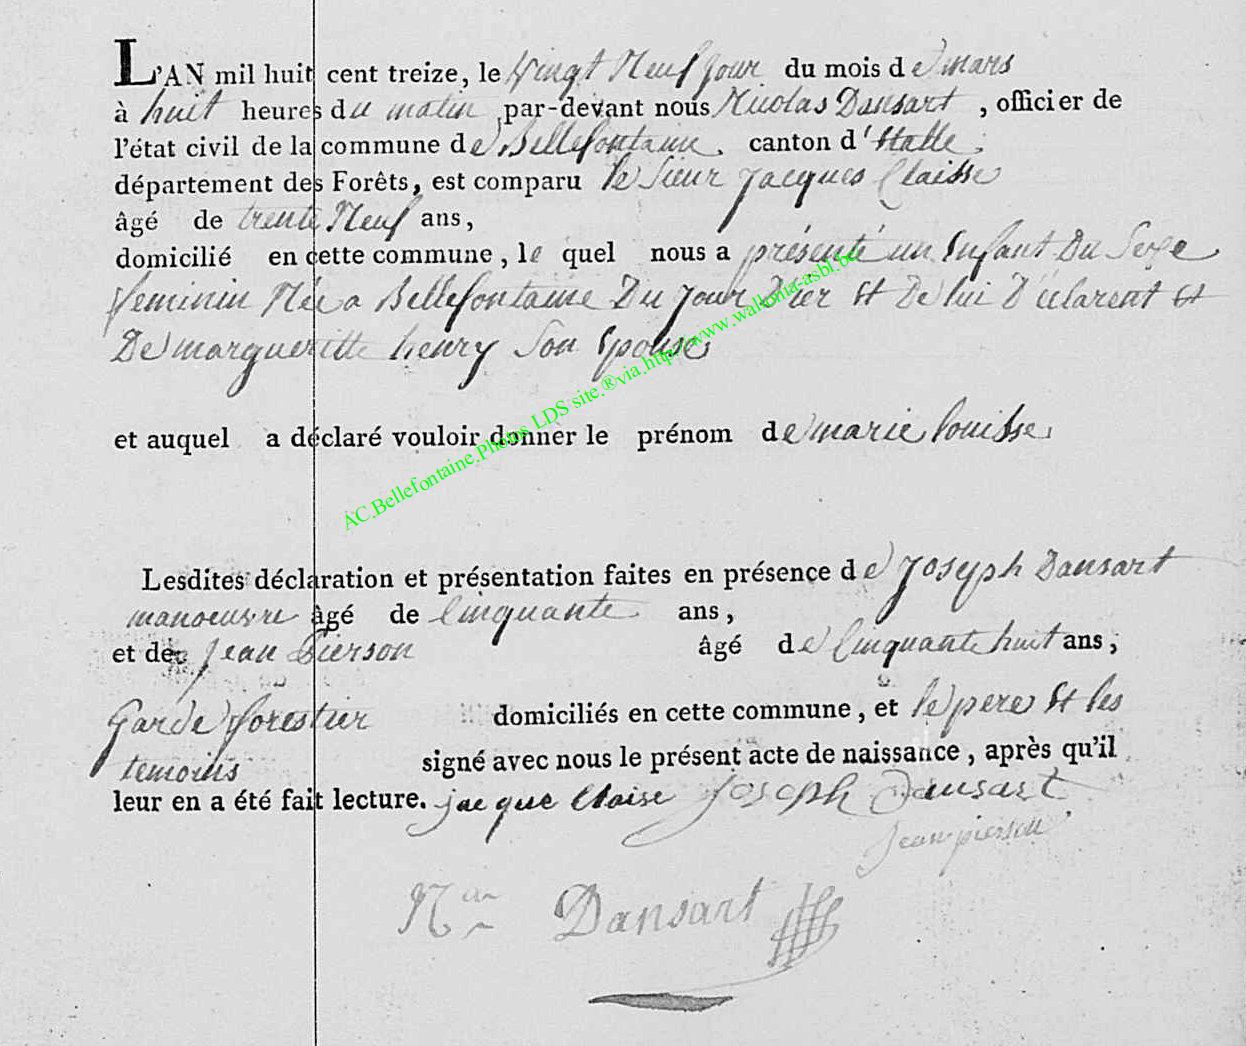 L'AN mil huit cent treize, le Vingt Neuf jour du mois de mars
à huit heures du matin par-devant nous Nicolas Dansart, officier de
l'état civil de la commune de Bellefontaine, canton d'Etalle,
département des Forêts, est comparu le Sieur Jacques Claisse
âgé de trente Neuf ans,
domicilié en cette commune, le quel nous a présenté un Enfant Du Sexe
feminin Née a Bellefontaine Du jour D'ier Et De lui D'éclarent Et
De margueritte henry Son Epouse
et auquel a déclaré vouloir donner le prénom de marie louisse
AC.Bellefontaine.Photos LDS site.®via.http://www.wallonia-asbl.be
Lesdites déclaration et présentation faites en présence de Joseph Dansart
manoeuvre âgé de Cinquante ans,
et de Jean Pierson âgé de Cinquante huit ans,
Garde forestier domiciliés en cette commune, et le pere Et les
temoins signé avec nous le présent acte de naissance, après qu'il
leur en a été fait lecture. jacque Claise Joseph Dansart
Jean pierson
Dansart